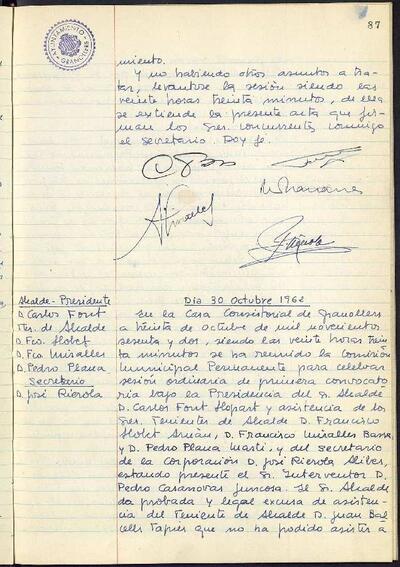 87
AYUNTAMIENTO
GRANOLLERS
miento.
Y no habiendo otros asuntos a tra-
tar, levantose la sesión siendo las
veinte horas treinta minutos, de ella
se extiende la presente acta que fir-
man los Sres. concurrentes conmigo
el secretario. Doy fe.
Alcalde-Presidente
D. Carlos Font
Tes. de Alcalde
D. Fco. Llobet
D. Fco Miralles
D. Pedro Plana
Secretario
D. José Rierola
Día 30 octubre 1962
En la Casa Consistorial de Granollers
a treinta de octubre de mil novecientos
sesenta y dos, siendo las veinte horas trein
ta minutos se ha reunido la Comisión
Municipal Permanente para celebrar
sesión ordinaria de primera convocato
ria bajo la Presidencia del Sr. Alcalde
D. Carlos Font Llopart y asistencia de los
Sres. Tenientes de Alcalde D. Francisco
Llobet Arnán, D. Francisco Miralles Barra
y D. Pedro Plana Martí, y del Secretario
de la Corporación D. José Rierola Alibes,
estando presente el Sr. Interventor D.
Pedro Casanovas Juncosa. El Sr. Alcalde
da probada y legal excusa de asisten-
cia del Teniente de Alcalde D. Juan Bal
cells Tapies que no ha podido asistir a